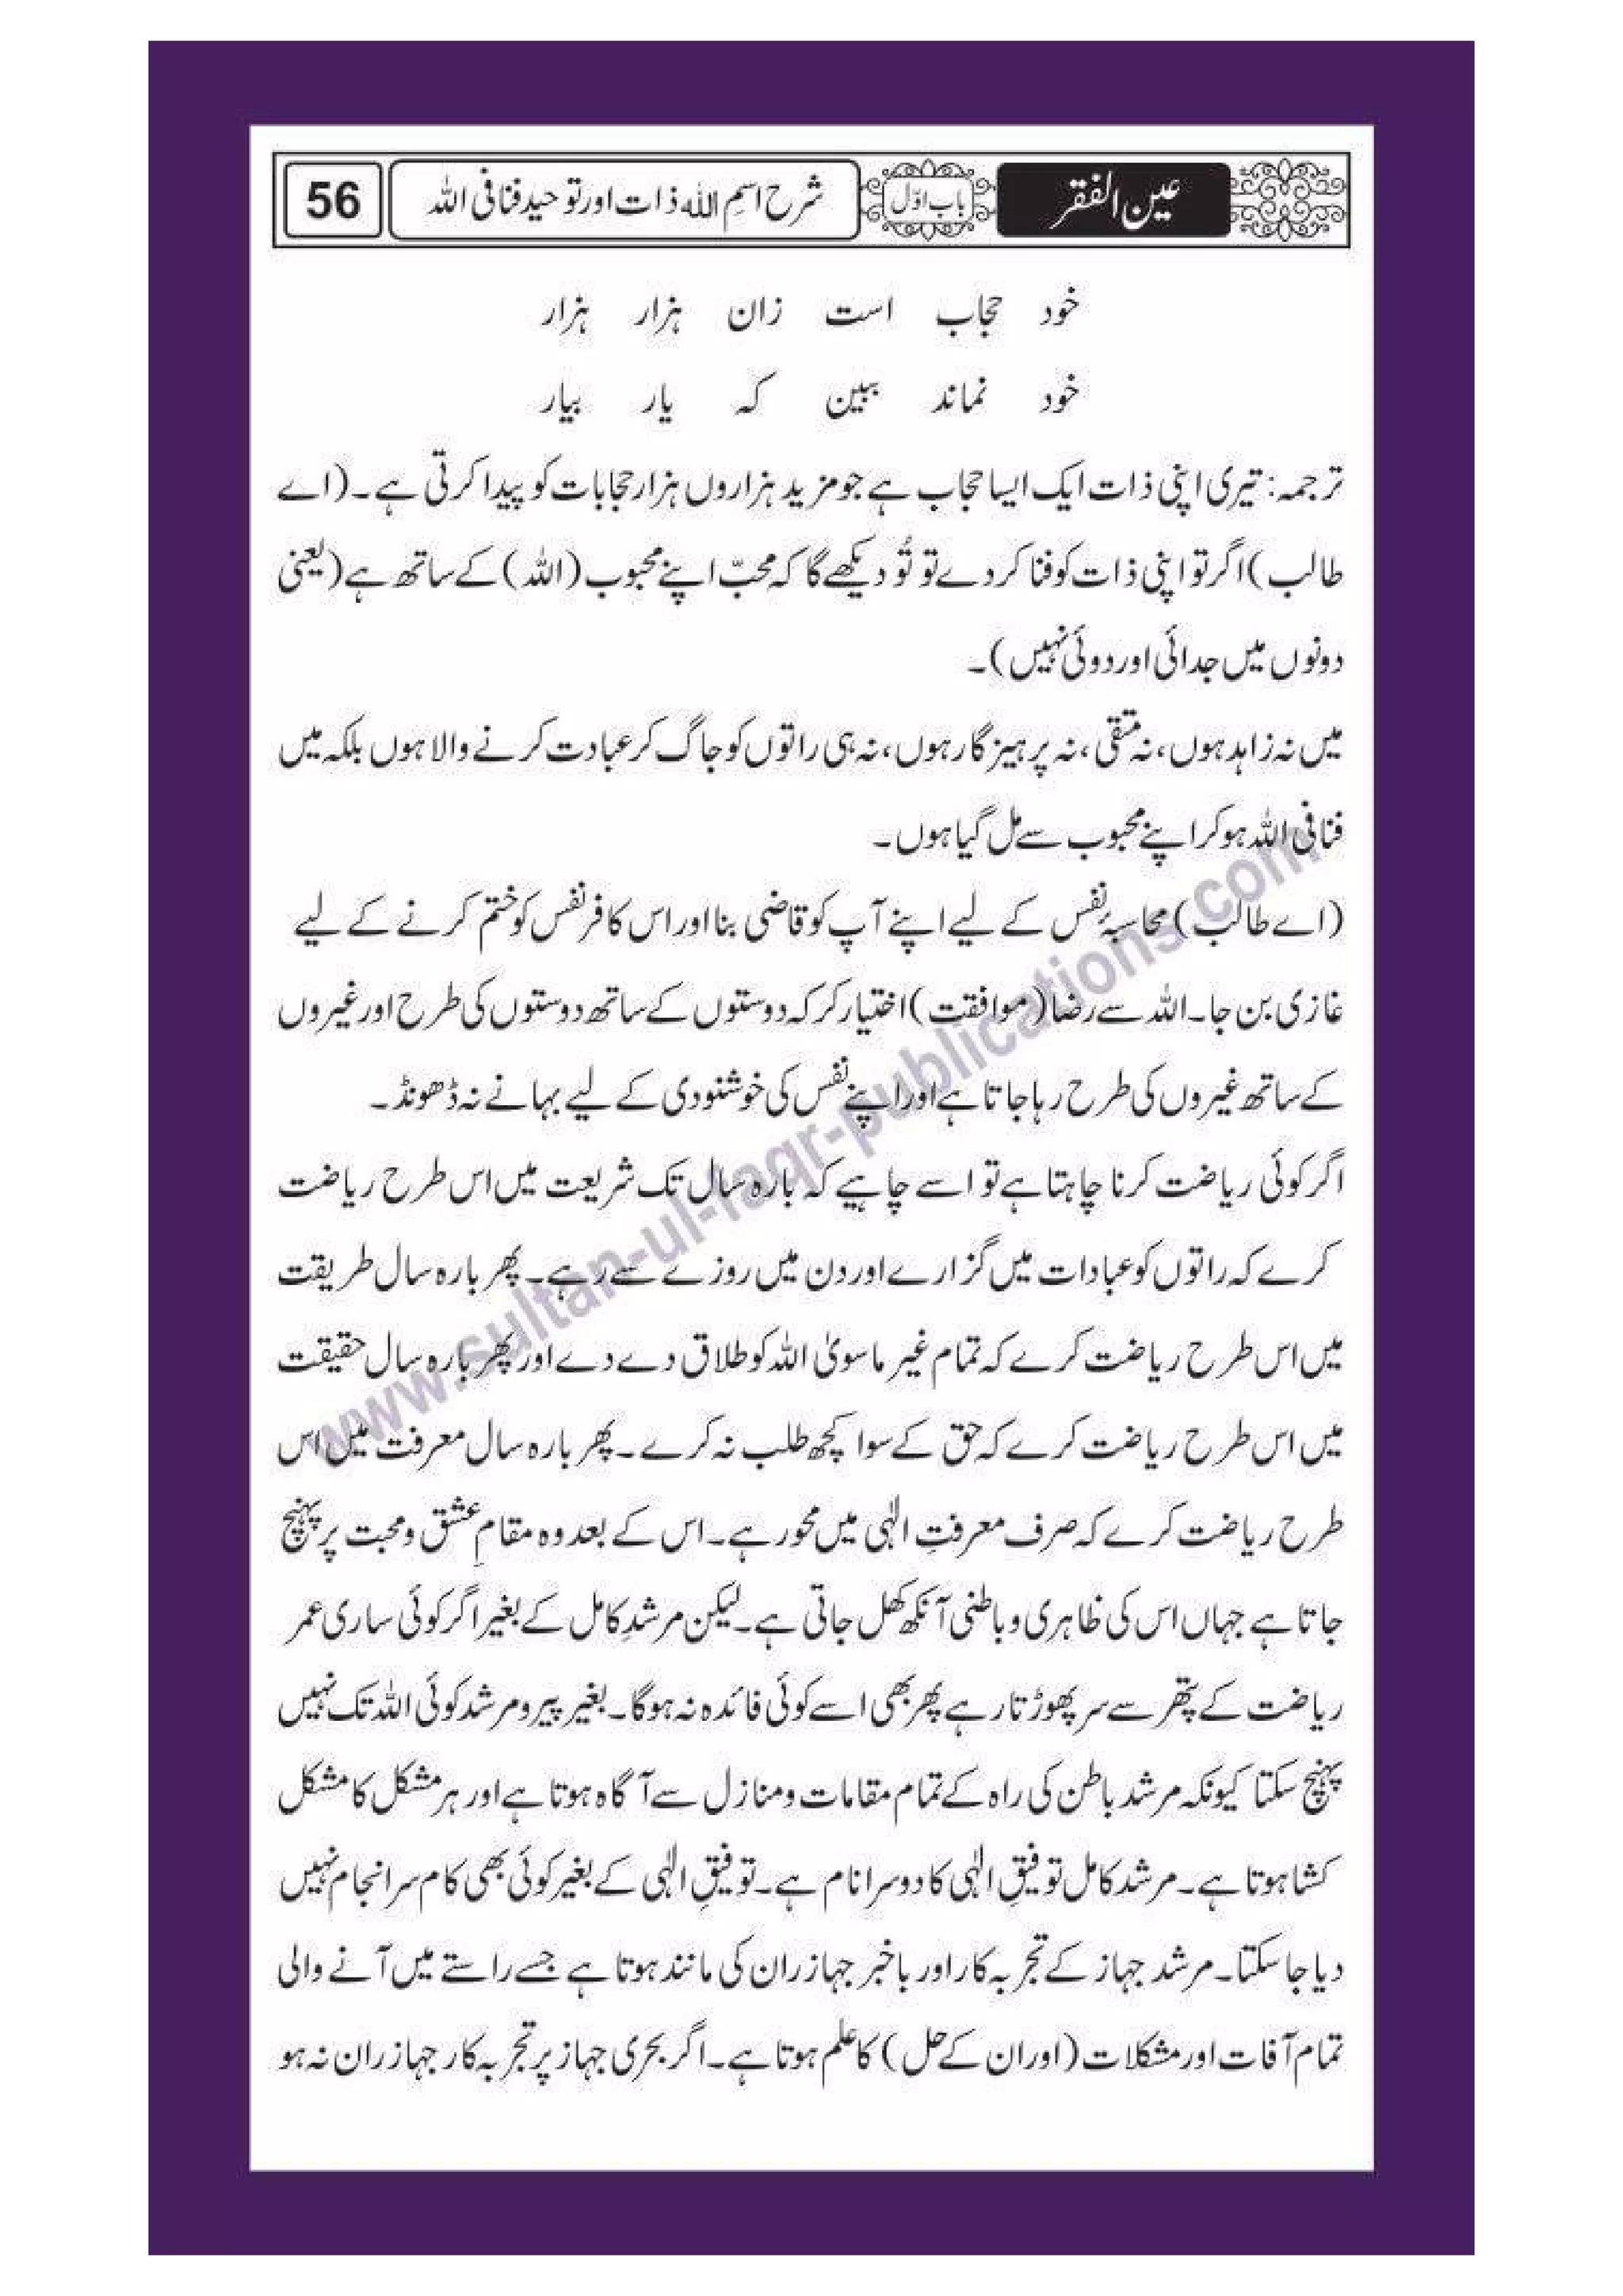 عین الفقر باب اوّل شرح اسمِ اللہ ذات اور توحید فنا فی اللہ 56
خود حجاب است زان ہزار ہزار
خود نماند ببین کہ یار بیار
ترجمہ: تیری اپنی ذات ایک ایسا حجاب ہے جو مزید ہزاروں ہزار حجابات کو پیدا کرتی ہے۔ (اے
طالب) اگر تو اپنی ذات کو فنا کر دے تو تُو دیکھے گا کہ محبّ اپنے محبوب (اللہ) کے ساتھ ہے (یعنی
دونوں میں جدائی اور دوئی نہیں)۔
میں نہ زاہد ہوں، نہ متقی، نہ پرہیز گار ہوں، نہ ہی راتوں کو جاگ کر عبادت کرنے والا ہوں بلکہ میں
فنا فی اللہ ہو کر اپنے محبوب سے مل گیا ہوں۔
(اے طالب) محاسبۂ نفس کے لیے اپنے آپ کو قاضی بنا اور اس کافر نفس کو ختم کرنے کے لیے
غازی بن جا۔ اللہ سے رضا (موافقت) اختیار کر کہ دوستوں کے ساتھ دوستوں کی طرح اور غیروں
کے ساتھ غیروں کی طرح رہا جاتا ہے اور اپنے نفس کی خوشنودی کے لیے بہانے نہ ڈھونڈ۔
اگر کوئی ریاضت کرنا چاہتا ہے تو اسے چاہیے کہ بارہ سال تک شریعت میں اس طرح ریاضت
کرے کہ راتوں کو عبادات میں گزارے اور دن میں روزے سے رہے۔ پھر بارہ سال طریقت
میں اس طرح ریاضت کرے کہ تمام غیر ماسویٰ اللہ کو طلاق دے دے اور پھر بارہ سال حقیقت
میں اس طرح ریاضت کرے کہ حق کے سوا کچھ طلب نہ کرے۔ پھر بارہ سال معرفت میں اس
طرح ریاضت کرے کہ صرف معرفتِ الٰہی میں محو رہے۔ اس کے بعد وہ مقامِ عشق و محبت پر پہنچ
جاتا ہے جہاں اس کی ظاہری و باطنی آنکھ کھل جاتی ہے۔ لیکن مرشدِ کامل کے بغیر اگر کوئی ساری عمر
ریاضت کے پتھر سے سر پھوڑتا رہے پھر بھی اسے کوئی فائدہ نہ ہوگا۔ بغیر پیر و مرشد کوئی اللہ تک نہیں
پہنچ سکتا کیونکہ مرشد باطن کی راہ کے تمام مقامات و منازل سے آگاہ ہوتا ہے اور ہر مشکل کا مشکل
کشا ہوتا ہے۔ مرشد کامل توفیقِ الٰہی کا دوسرا نام ہے۔ توفیقِ الٰہی کے بغیر کوئی بھی کام سر انجام نہیں
دیا جا سکتا۔ مرشد جہاز کے تجربہ کار اور باخبر جہاز ران کی مانند ہوتا ہے جسے راستے میں آنے والی
تمام آفات اور مشکلات (اور ان کے حل) کا علم ہوتا ہے۔ اگر بحری جہاز پر تجربہ کار جہاز ران نہ ہو
www.sultan-ul-faqr-publications.com